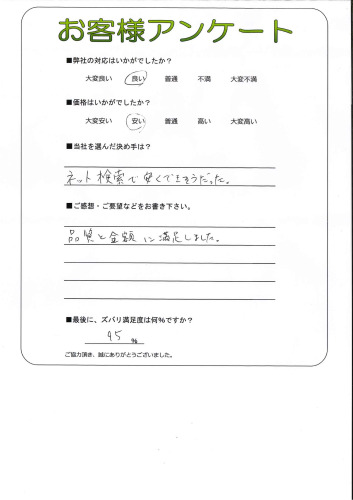 お客様アンケート
■弊社の対応はいかがでしたか？
大変良い 良い 普通 不満 大変不満
■価格はいかがでしたか？
大変安い 安い 普通 高い 大変高い
■当社を選んだ決め手は？
ネット検索で安くできそうだった。
■ご感想・ご要望などをお書き下さい。
品質と金額に満足しました。
■最後に、ズバリ満足度は何%ですか？
95 %
ご協力頂き、誠にありがとうございました。